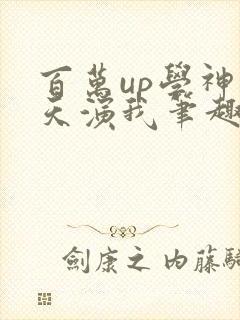 百萬up學神
天演我筆趣
劍康之内藤騎